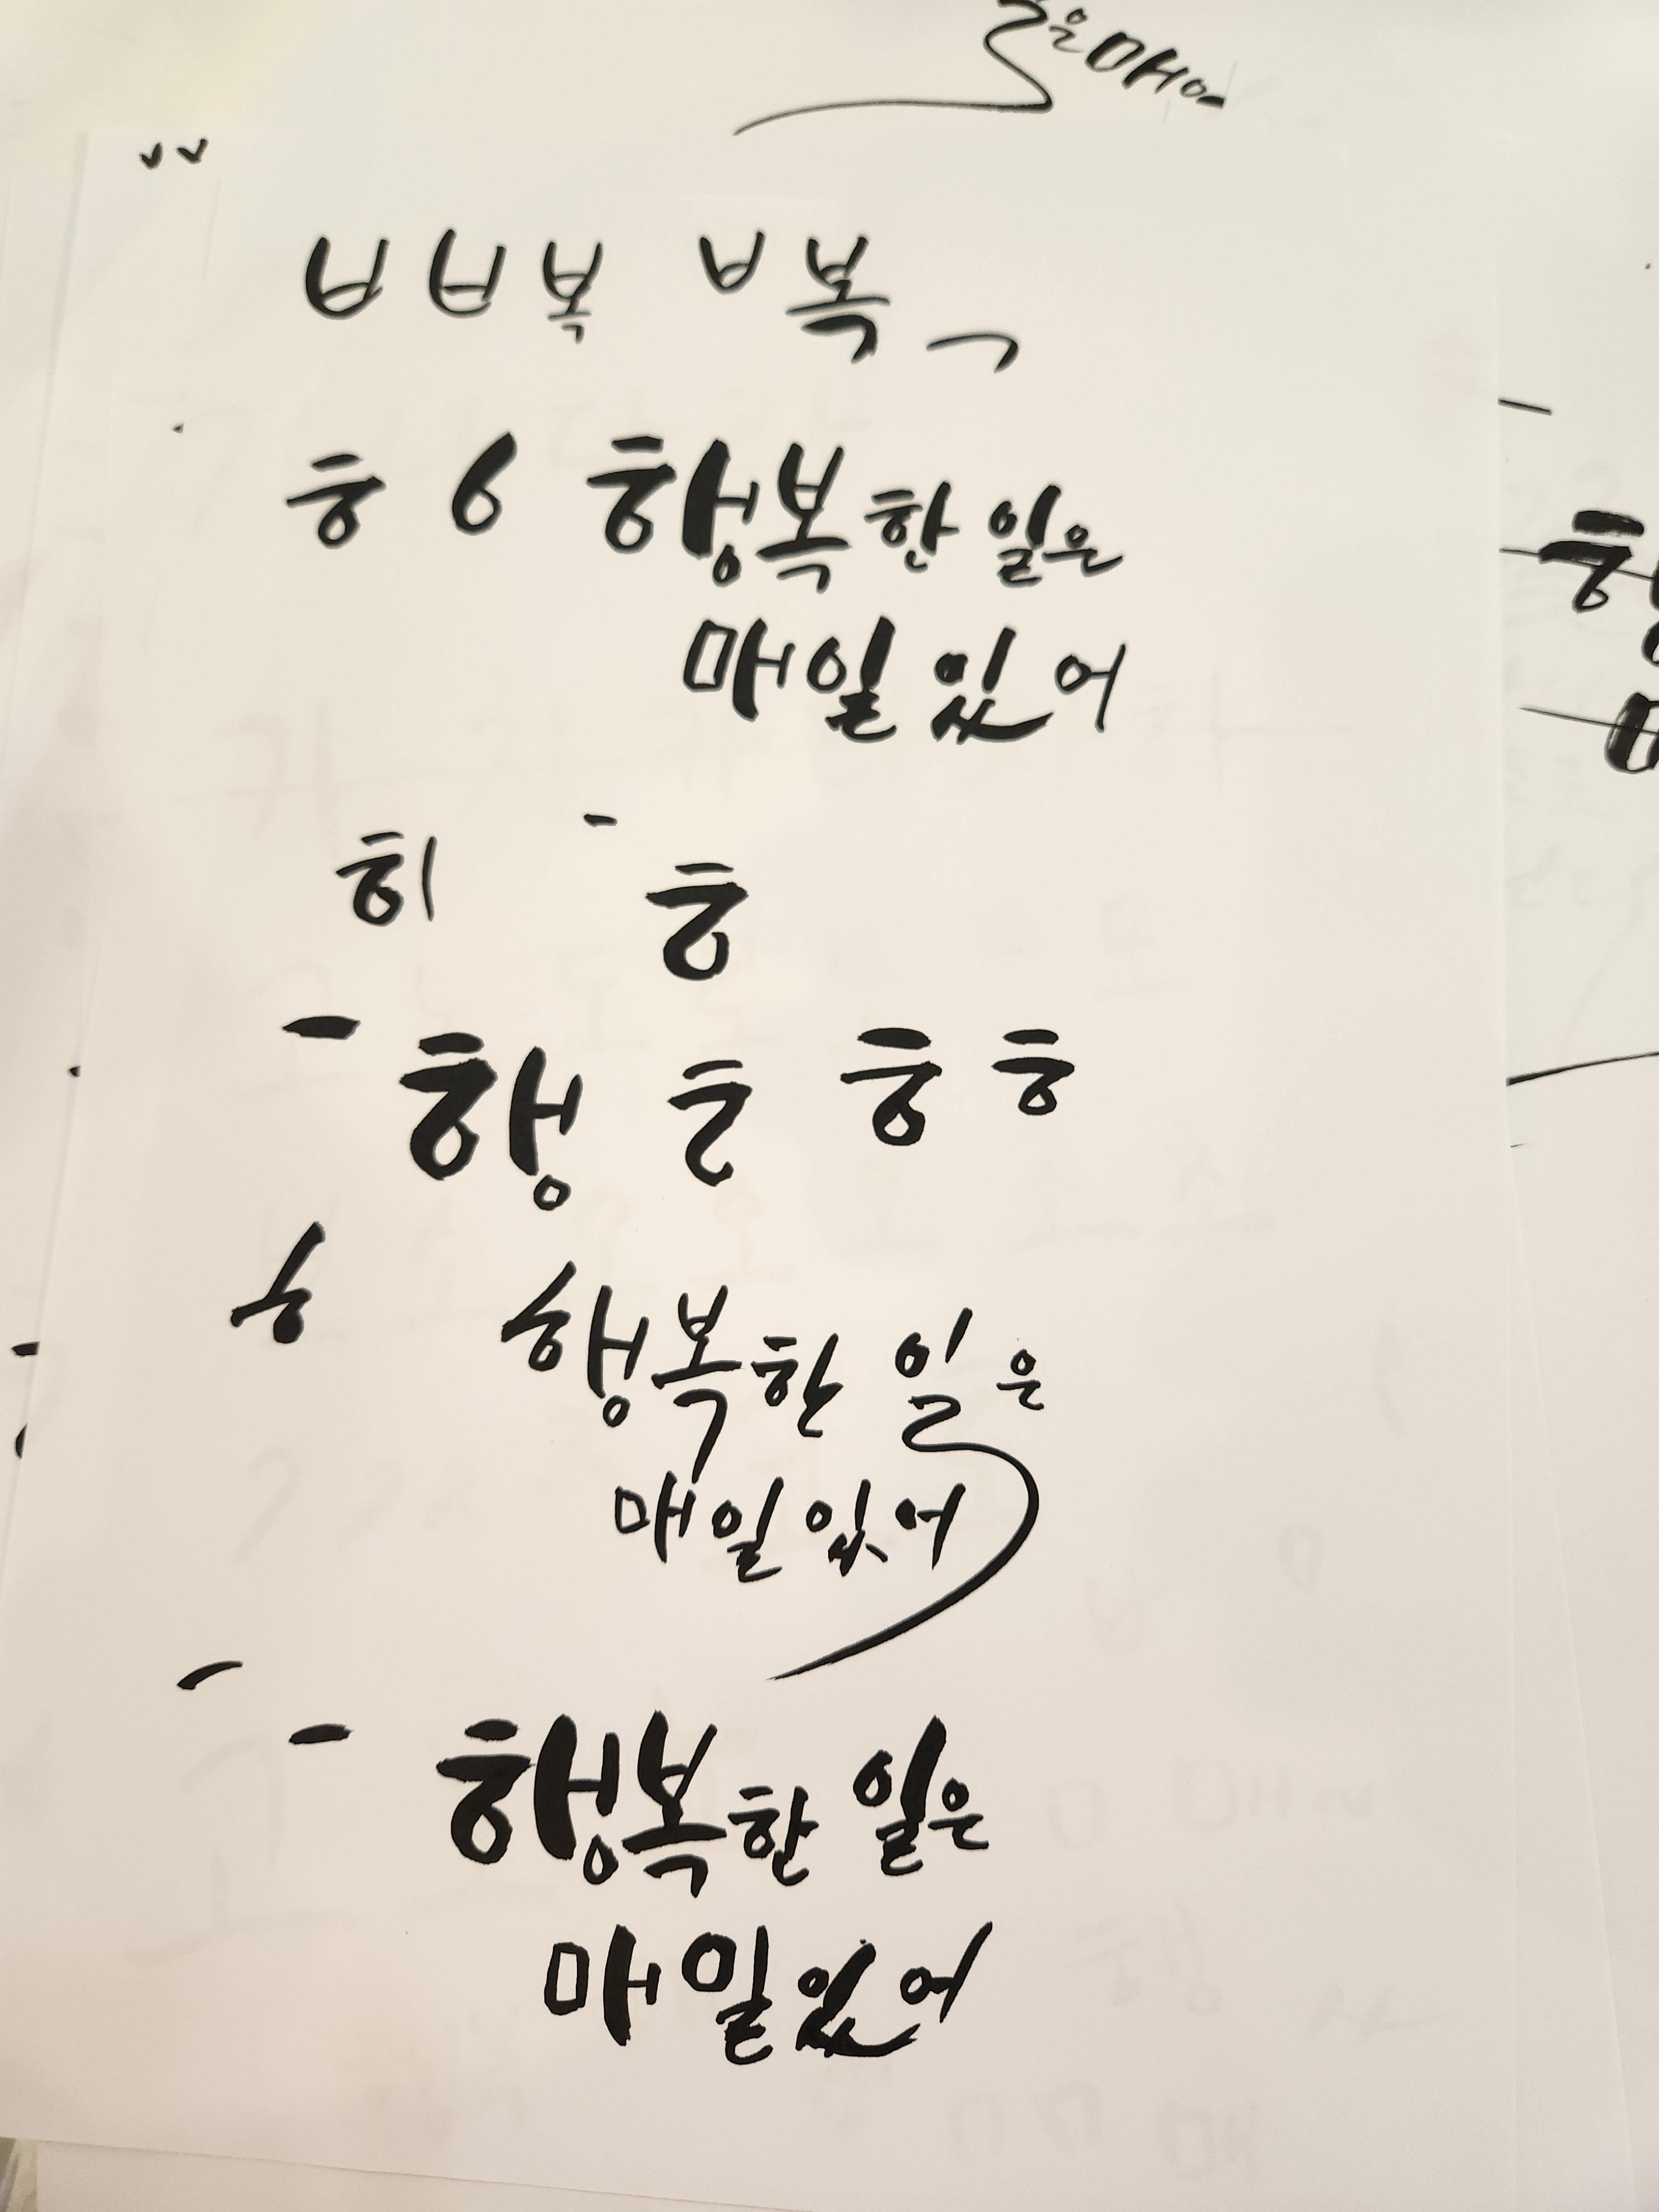 은매일
ㅂ ㅂ 복 ㅂ 복 ㄱ
ㅎ ㅇ 행복한 일은
매일 있어
히 ㅎ
행 ㅎ ㅎ
ㅎ 행복한 일은
매일 있어
행복한 일은
매일 있어